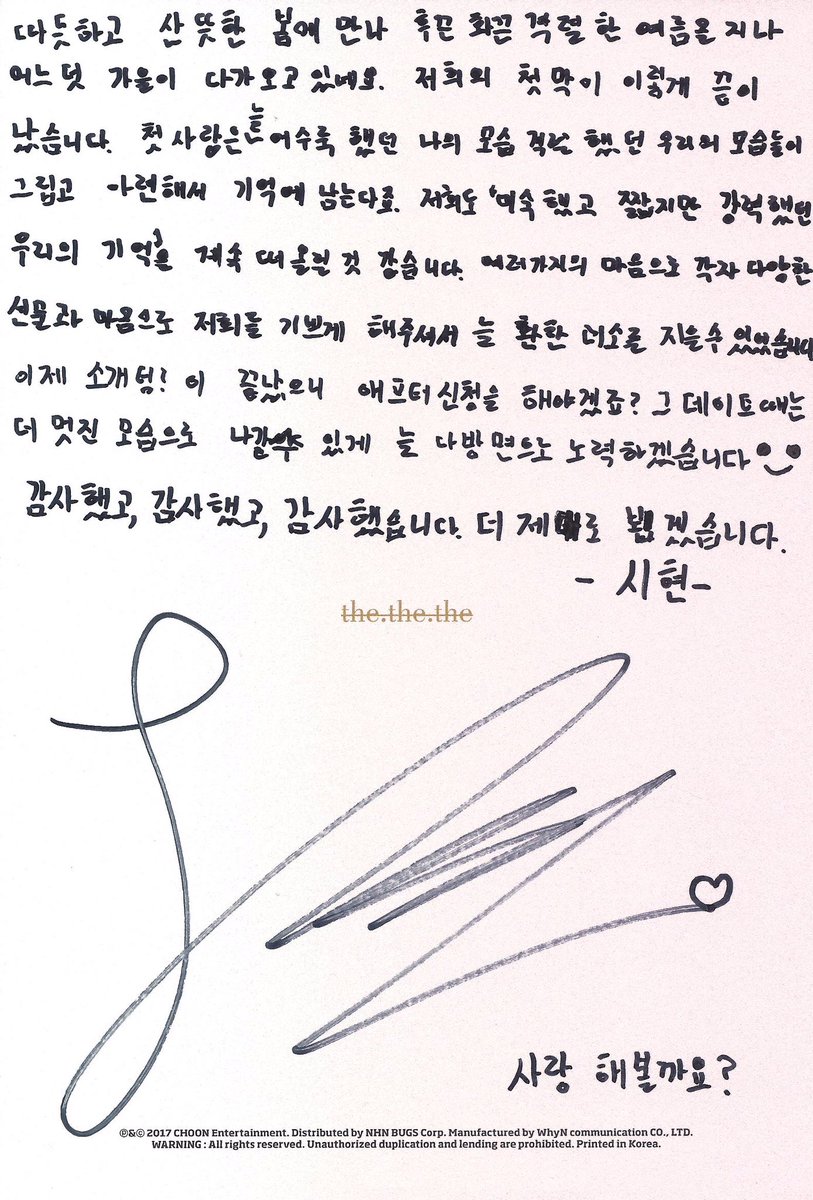 따듯하고 산뜻한 봄에 만나 후끈 화끈 격렬한 여름을 지나
어느덧 가을이 다가오고 있네요. 저희의 첫 막이 이렇게 끝이
났습니다. 첫사랑은 늘 어수룩 했던 나의 모습 격렬 했던 우리의 모습들이
그립고 아련해서 기억에 남는다죠. 저희도 '미숙했고 짧지만 강력했던
우리의 기억'을 계속 떠올릴 것 같습니다. 여러가지의 마음으로 각자 다양한
선물과 마음으로 저희를 기쁘게 해주셔서 늘 환한 미소를 지을수 있었습니다
이제 소개팅! 이 끝났으니 애프터신청을 해야겠죠? 그 데이트때는
더 멋진 모습으로 나갈수 있게 늘 다방면으로 노력하겠습니다
감사했고, 감사했고, 감사했습니다. 더 제대로 뵙겠습니다.
- 시현 -
the.the.the
사랑 해볼까요?
℗&© 2017 CHOON Entertainment. Distributed by NHN BUGS Corp. Manufactured by WhyN communication CO., LTD.
WARNING : All rights reserved. Unauthorized duplication and lending are prohibited. Printed in Korea.